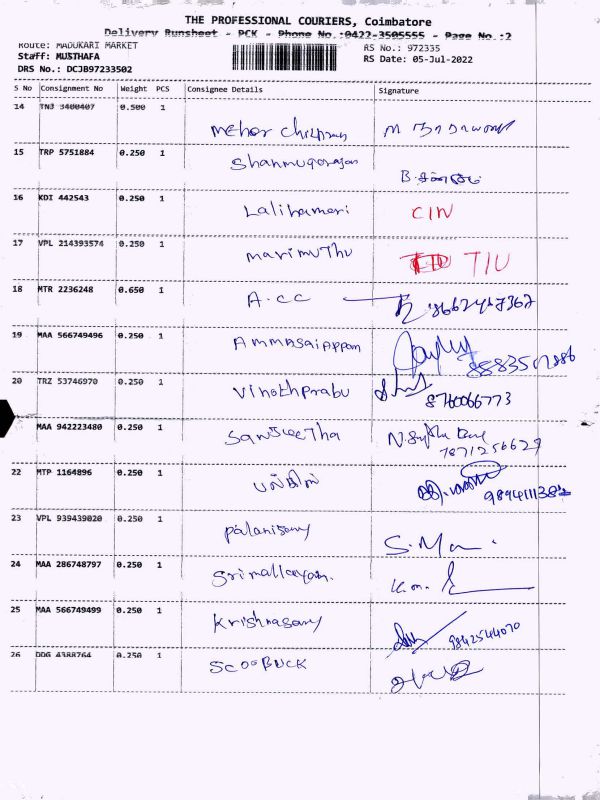 THE PROFESSIONAL COURIERS, Coimbatore
Delivery Runsheet - PCK - Phone No.:0422-3505555 - Page No.:2
Route: MADUKARI MARKET
RS No.: 972335
Staff: MUSTHAFA
RS Date: 05-Jul-2022
DRS No.: DCJB97233502
S No Consignment No Weight PCS Consignee Details Signature
14 TNJ 3400407 0.500 1
15 TRP 5751884 0.250 1
Shanmugarajan
16 KDI 442543 0.250 1
Lalikumari CIN
17 VPL 214393574 0.250 1
Marimuthu TIU
18 MTR 2236248 0.650 1
A.CC
19 MAA 566749496 0.250 1
AmmAsaiAppan
20 TRZ 53746970 0.250 1
Vinothprabu 8760066773
MAA 942223480 0.250 1
Sangeetha
7871256627
22 MTP 1164896 0.250 1
23 VPL 939439020 0.250 1
Palanisamy
S.Ma
24 MAA 286748797 0.250 1
K.m.
25 MAA 566749499 0.250 1
Krishnasamy 9842544070
26 DDG 4388764 0.250 1
SCOOBUCK